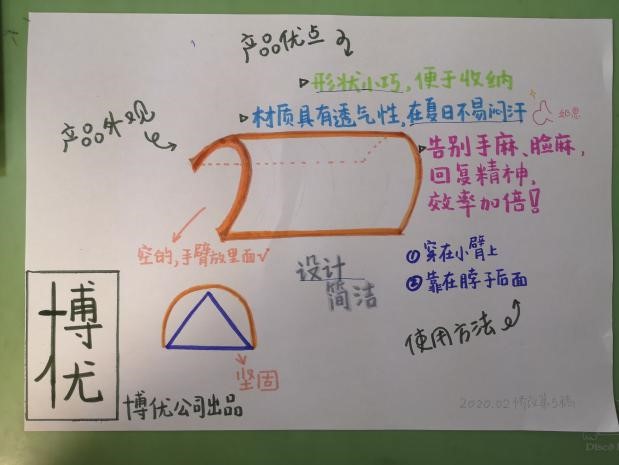 产品优点
形状小巧，便于收纳
材质具有透气性，在夏日不易闷汗
产品外观
告别手麻、脸麻，
回复精神，
效率加倍！
空的，手臂放里面√
设计
简洁
①穿在小臂上
②靠在脖子后面
使用方法
博优
坚固
博优公司出品
2020.02修改第5稿